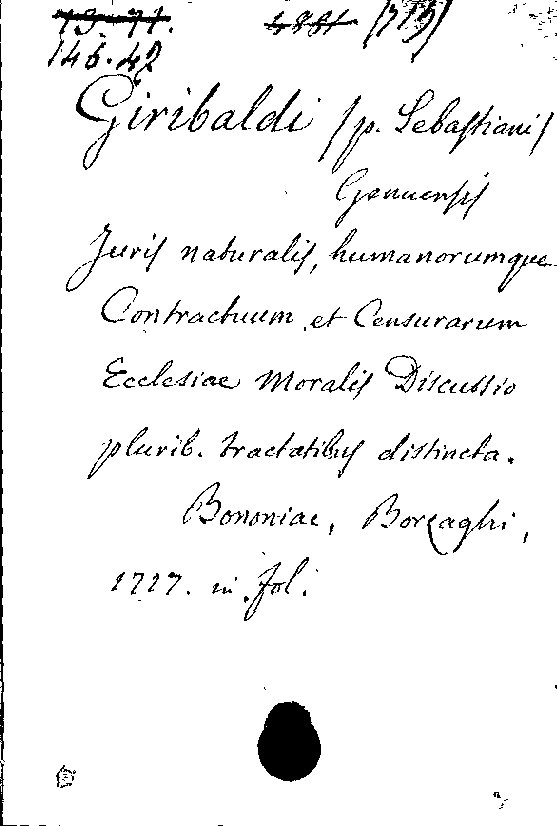 13-71. 4881 (713)
146.42
Giribaldi /p. Sebastiani/
Genuensis
Juris naturalis, humanorumque
Contractuum et Censurarum
Ecclesiae Moralis Discussio
plurib. tractatibus distincta.
Bononiae, Borzaghi,
1717. in fol.